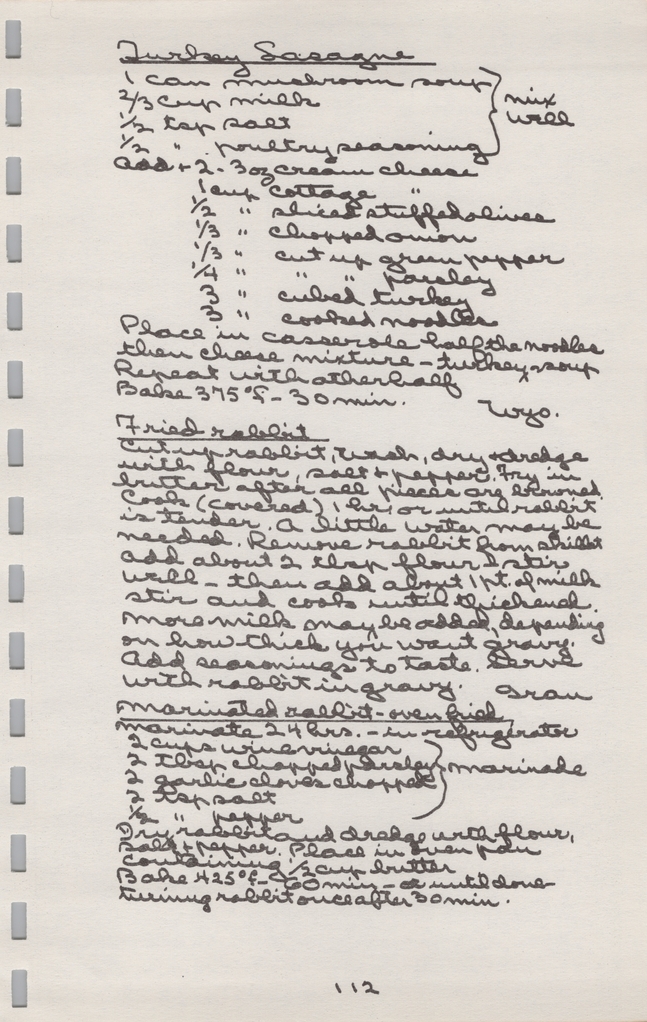 Turkey Lasagne
1 can mushroom soup
2/3 cup milk
1/2 tsp salt
1/2 " poultry seasoning
mix
well
Add + 2 - 3 oz cream cheese
1 cup cottage "
1/2 " sliced stuffed olives
1/3 " chopped onion
1/3 " cut up green pepper
1/4 " " " parsley
3 " cubed turkey
3 " cooked noodles
Place in casserole half the noodles
then cheese mixture - turkey, soup
Repeat with other half
Bake 375°F - 30 min.
Wyo.
Fried rabbit
Cut up rabbit, wash, dry + dredge
with flour, salt + pepper. Fry in
butter after all pieces are browned.
Cook (covered) 1 hr, or until rabbit
is tender. A little water may be
needed. Remove rabbit from skillet
add about 2 tbsp flour & stir
well - then add about 1 pt. of milk
stir and cook until thickend.
More milk may be added, depending
on how thick you want gravy.
Add seasonings to taste. Serve
with rabbit in gravy.
Gran
Marinated rabbit - oven fried
marinate 24 hrs. - in refrigerator
2 cups wine vinegar
2 tbsp chopped parsley
2 garlic cloves chopped
2 tsp salt
1/2 " pepper
marinade
Dry rabbit and dredge with flour,
salt + pepper. Place in oven pan
containing 1/2 cup butter
Bake 425°F - 60 min - or until done
turning rabbit once after 30 min.
112